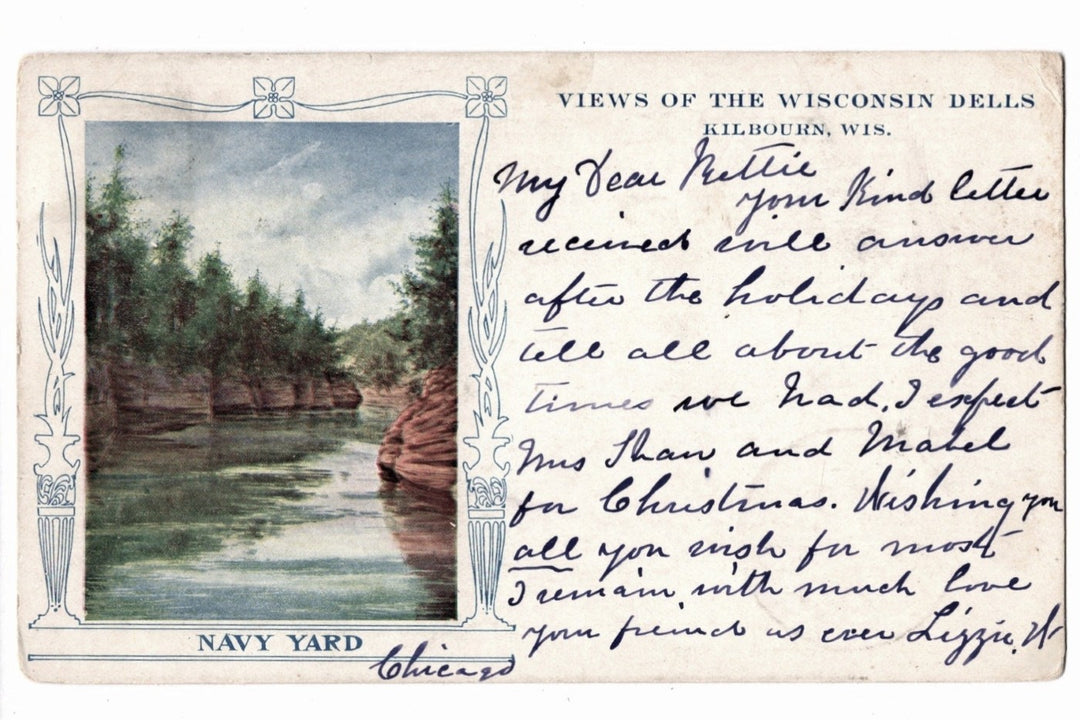 VIEWS OF THE WISCONSIN DELLS
KILBOURN, WIS.
My Dear Nettie
your Kind letter
recieved will answer
after the holidays and
tell all about the good
times we had. I expect
Mrs Shaw and Mabel
for Christmas. Wishing you
all you wish for most
I remain with much love
your friend as ever Lizzie. W
NAVY YARD
Chicago